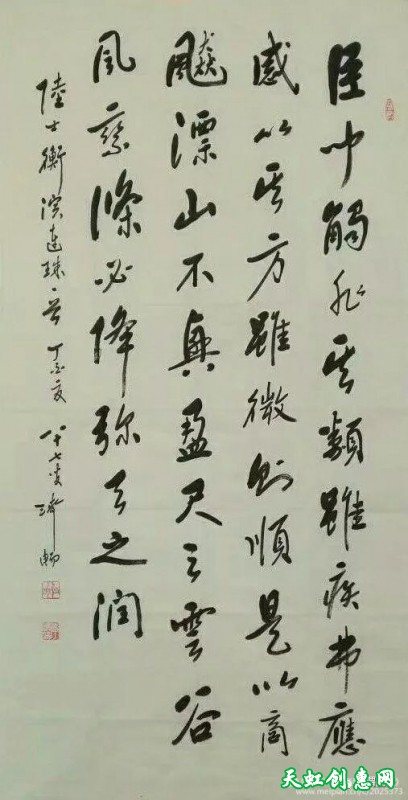 臣聞觸非其類雖疾弗應
感以其方雖微則順是以商
飆漂山不興盈尺之雲谷
風乘條必降弥天之潤
陸士衡演連珠一首 八十七叟
天虹创惠网